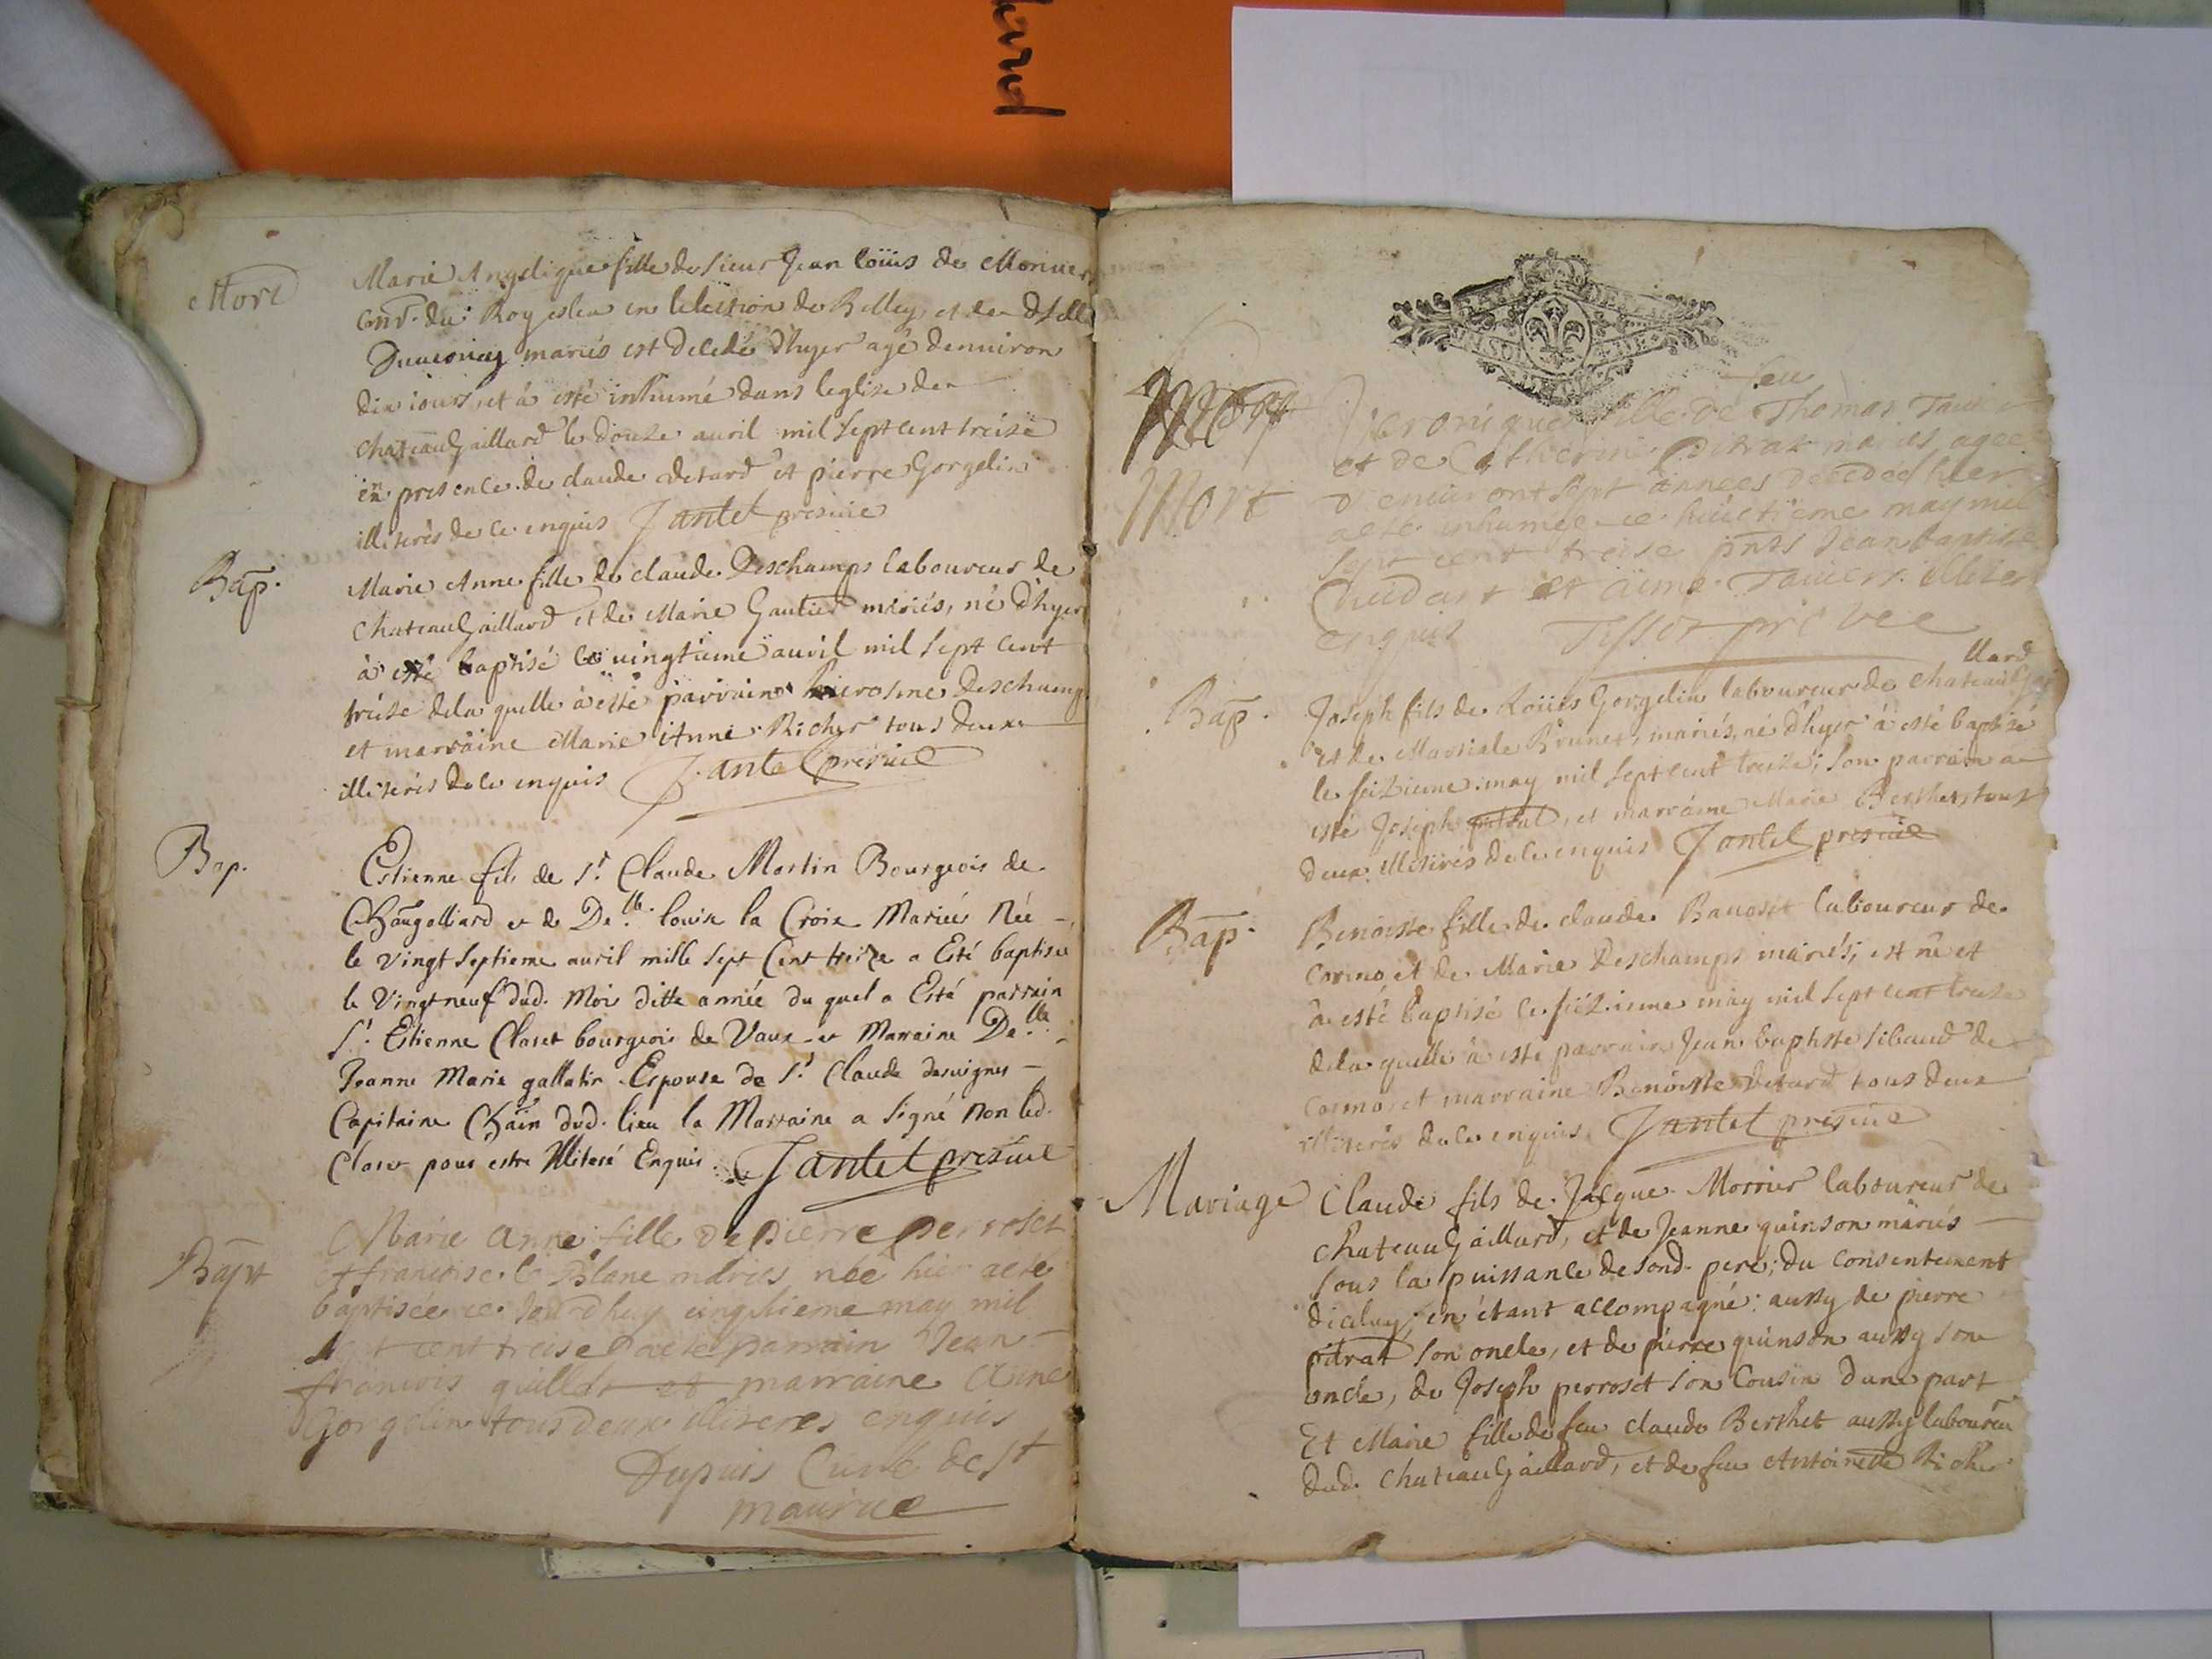 Mort
Marie Angelique fille de sieur Jean loüis de Monuer
Cons.r du Roy esleu en lelection de Belley et de dslle
mariés est decedé d'hyer agé denuiron
dix iours, et à esté inhumé dans leglise de
chateauGaillard le douse auril mil sept cent treise
en presence de claude detard et pierre Gorgelin
illiterés de ce enquis Jantet presvic
Bap.
Marie Anne fille de claude Deschamps laboureur de
chateauGaillard et de Marie Gautier mariés, né d'hyer
à esté baptisé le uingtieme auril mil sept cent
treise dela quelle à esté parrain hierosme Deschamps
et marraine Marie Anne Richer tous deux
illiterés de ce enquis Jantet presvic
Bap.
Estienne fils de Sr. Claude Martin Bourgeois de
Chaugalliard et de Delle. louise la Croix Mariés Née
le vingt septieme auril mille sept Cent treize a Esté baptisé
le vingtneuf dud. Moi ditte année du quel a Esté parrain
Sr. Estienne Claret bourgeois de Vaux et Marraine Delle.
Jeanne Marie gallatin Espouse de Sr. Claude desuignes
Capitaine Chain dud. lieu la Marraine a signé non led.
Claret pour estre Illiteré Enquis. Jantet presvic
Bapt
Marie anne fille de pierre perroset
et francoise le Blanc mariés née hier aeté
baptisée ce Jourdhuy cinqhieme may mil
sept cent treise aeté parrain Jean
francois guillot et marraine Anne
Gorgelin tous deux illiteres enquis
Dupuis Curé de St
maurice
Mort
Mort
feu
Veronique fille de Thomas Tauier
et de Catherine pitrat mariés agee
d'enuiront sept années decedée hier
aeté inhumée ce huictieme may mil
sept cent treise pnts Jean baptiste
Chudart et aimé Tauier illiter
enquis Tissot pre vic
Bap.
llard
Joseph fils de Loüis Gorgelin laboureur de chateauGai
et de Martiale Brunet, mariés, né d'hyer à esté baptisé
le seizieme may mil sept cent treise; son parrain a
esté Joseph pitrat, et marraine Marie Berthet, tous
deux illiterés de ce enquis Jantet presvic
Bap.
Benoiste fille de claude Bauoset laboureur de
cormo, et de Marie Deschamps mariés, est né et
à esté baptisé ce seizieme may mil sept cent treise
dela quelle à esté parrain Jean baptiste sibaud de
cormo, et marraine Benoiste detard tous deux
illiterés de ce enquis Jantet presvic
Mariage
Claude fils de Jacque Morrier laboureur de
chateauGaillard, et de Jeanne quinson mariés
sous la puissance de sond. pere; du consentement
dicaluy, en étant accompagné; aussy de pierre
pitrat son oncle, et de pierre quinson aussy son
oncle, de Joseph perroset son cousin dune part
Et Marie fille de feu claude Berthet aussy laboureu
dud. chateauGaillard, et de feu Antoinette Richer